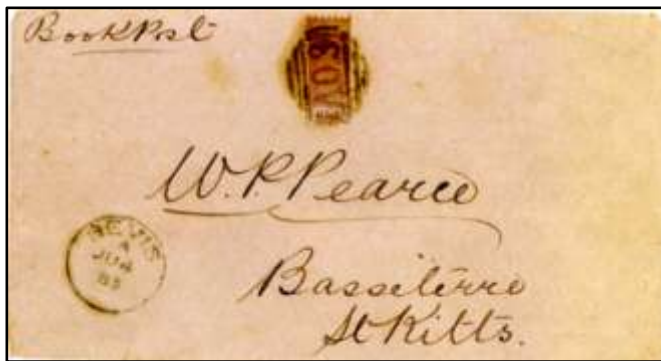 Book Post
W. P. Pearce
NEVIS
A
Bassiterre
St Kitts.